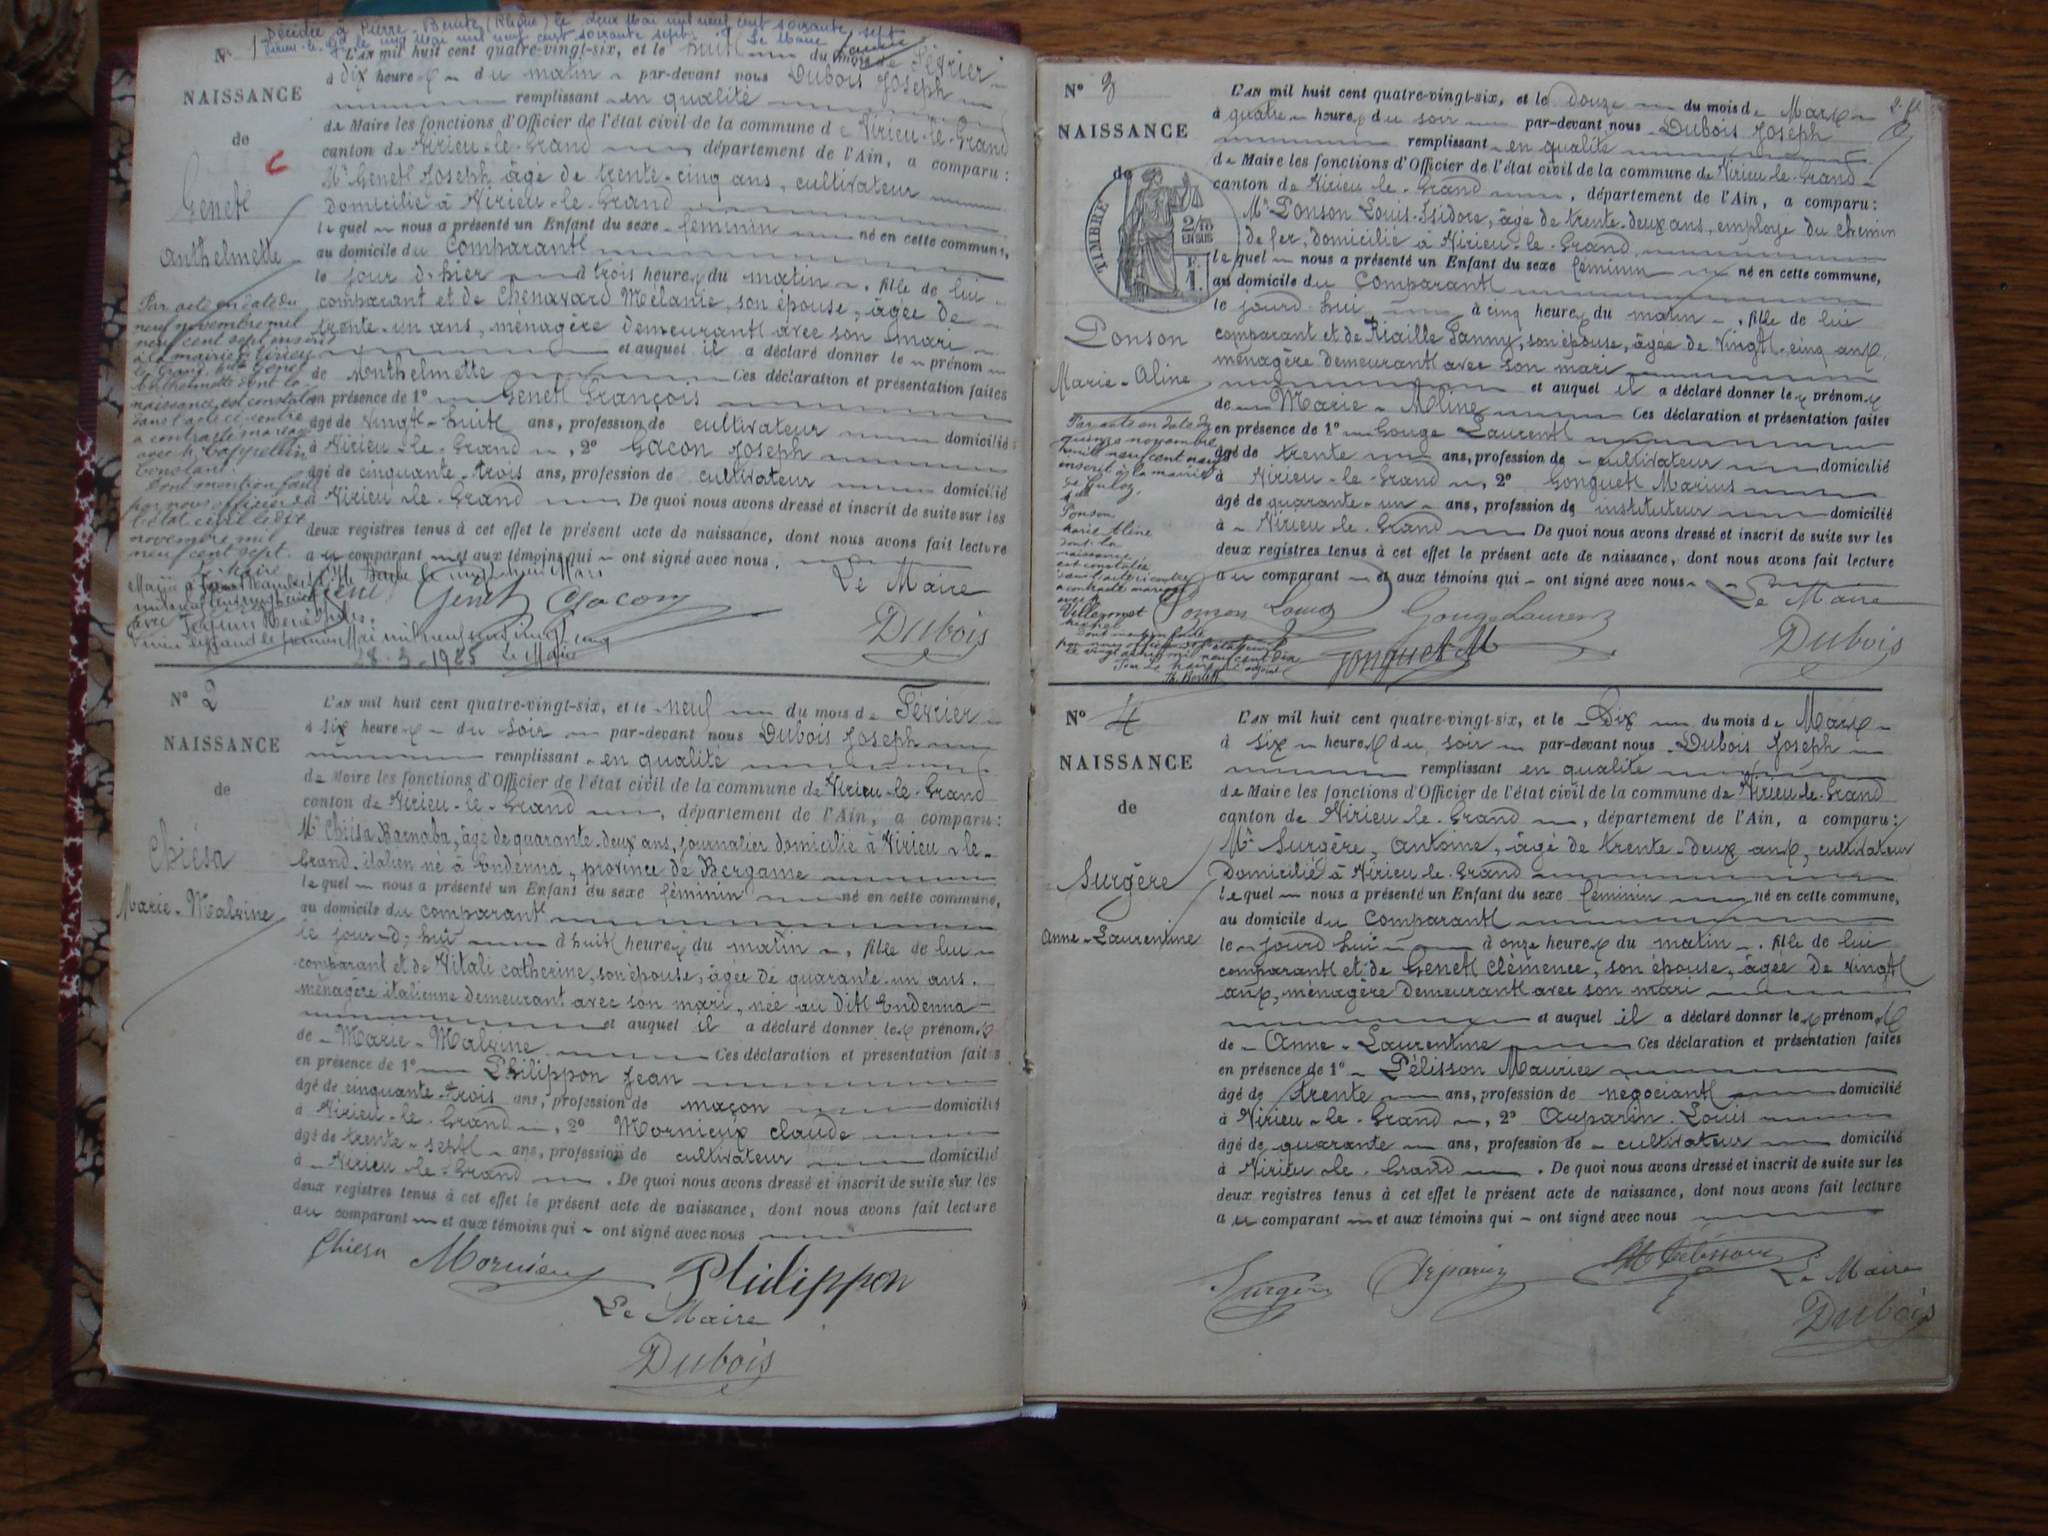 Décédée à Pierre-Bénite (Rhône) le deux Mai mil neuf cent soixante sept
Virieu-le-Gd le Mai mil neuf cent soixante sept. Le Maire
N° 1
NAISSANCE
de
Genetl
Anthelmette
L'AN mil huit cent quatre-vingt-six, et le huitl du mois de Février
à dix heures du matin par-devant nous Dubois Joseph
remplissant en qualité
de Maire les fonctions d'Officier de l'état civil de la commune de Virieu-le-Grand
canton de Virieu-le-Grand, département de l'Ain, a comparu :
Mr Genetl Joseph âgé de trente-cinq ans, cultivateur
domicilié à Virieu-le-Grand
lequel nous a présenté un Enfant du sexe féminin né en cette commune,
au domicile du Comparantl
le jour d'hier à trois heures du matin, fille de lui
comparant et de Chenavard Mélanie, son épouse, âgée de
trente-un ans, ménagère demeurantl avec son mari
et auquel il a déclaré donner le prénom
de Anthelmette Ces déclaration et présentation faites
en présence de 1° Genetl François
âgé de vingtl-huitl ans, profession de cultivateur domicilié
à Virieu-le-Grand, 2° Gacon Joseph
âgé de cinquante-trois ans, profession de cultivateur domicilié
à Virieu-le-Grand De quoi nous avons dressé et inscrit de suite sur les
deux registres tenus à cet effet le présent acte de naissance, dont nous avons fait lecture
au comparant et aux témoins qui ont signé avec nous.
Par acte en date du
neuf novembre mil
neuf cent sept inscrit
à la mairie de Virieu
le Grand, Genet
Anthelmette dont la
naissance est constatée
dans l'acte ci-contre
a contracté mariage
avec
Constant.
Dont mention faite
par nous officier de
l'état civil le dix
novembre mil
neuf cent sept.
Le Maire
Genet Gacon
Le Maire
Dubois
28-3-1925 Le Maire
N° 2
NAISSANCE
de
Chiésa
Marie-Malvine
L'AN mil huit cent quatre-vingt-six, et le neuf du mois de Février
à six heures du soir par-devant nous Dubois Joseph
remplissant en qualité
de Maire les fonctions d'Officier de l'état civil de la commune de Virieu-le-Grand
canton de Virieu-le-Grand, département de l'Ain, a comparu :
Mr Chiésa Barnaba, âgé de quarante-deux ans, journalier domicilié à Virieu-le-
Grand, italien né à Endenna, province de Bergame
lequel nous a présenté un Enfant du sexe féminin né en cette commune,
au domicile du comparantl
le jour d'hui à huitl heures du matin, fille de lui
comparant et de Vitali Catherine, son épouse, âgée de quarante-un ans.
ménagère italienne demeurant avec son mari, née au ditl Endenna
et auquel il a déclaré donner les prénoms
de Marie-Malvine Ces déclaration et présentation faites
en présence de 1° Philippon Jean
âgé de cinquante-trois ans, profession de maçon domicilié
à Virieu-le-Grand, 2° Mornieux Claude
âgé de trente-septl ans, profession de cultivateur domicilié
à Virieu-le-Grand. De quoi nous avons dressé et inscrit de suite sur les
deux registres tenus à cet effet le présent acte de naissance, dont nous avons fait lecture
au comparant et aux témoins qui ont signé avec nous
Chiesa Mornieux Philippon
Le Maire
Dubois
N° 3
NAISSANCE
de
TIMBRE
2/10
EN SUS
F.
1.
Ponson
Marie-Aline
L'AN mil huit cent quatre-vingt-six, et le douze du mois de Mars
à quatre heures du soir par-devant nous Dubois Joseph
remplissant en qualité
de Maire les fonctions d'Officier de l'état civil de la commune de Virieu-le-Grand
canton de Virieu-le-Grand, département de l'Ain, a comparu :
Mr Ponson Louis-Isidore, âgé de trente-deux ans, employé du chemin
de fer, domicilié à Virieu-le-Grand
lequel nous a présenté un Enfant du sexe féminin né en cette commune,
au domicile du Comparantl
le jourd'hui à cinq heures du matin, fille de lui
comparant et de Riaille Fanny, son épouse, âgée de vingtl-cinq ans,
ménagère demeurantl avec son mari
et auquel il a déclaré donner les prénoms
de Marie-Aline Ces déclaration et présentation faites
en présence de 1° Gouge Laurentl
âgé de trente ans, profession de cultivateur domicilié
à Virieu-le-Grand, 2° Gonguetl Marius
âgé de quarante-un ans, profession de instituteur domicilié
à Virieu-le-Grand De quoi nous avons dressé et inscrit de suite sur les
deux registres tenus à cet effet le présent acte de naissance, dont nous avons fait lecture
au comparant et aux témoins qui ont signé avec nous
Par acte en date du
quinze novembre
mil neuf cent neuf
inscrit à la mairie
de Culoz,
Ponson
Marie Aline
dont la
naissance
est constatée
dans l'acte ci-contre
a contracté mariage
avec
Villermet
Michel
Dont mention faite
Ponson Louis Gouge Laurent
Gonguet M
Le Maire
Dubois
N° 4
NAISSANCE
de
Surgère
Anne-Laurentine
L'AN mil huit cent quatre-vingt-six, et le Dix du mois de Mars
à six heures du soir par-devant nous Dubois Joseph
remplissant en qualité
de Maire les fonctions d'Officier de l'état civil de la commune de Virieu-le-Grand
canton de Virieu-le-Grand, département de l'Ain, a comparu :
Mr Surgère, Antoine, âgé de trente-deux ans, cultivateur
Domicilié à Virieu-le-Grand
lequel nous a présenté un Enfant du sexe féminin né en cette commune,
au domicile du Comparantl
le jourd'hui à onze heures du matin, fille de lui
comparantl et de Genetl Clémence, son épouse, âgée de vingtl
ans, ménagère demeurantl avec son mari
et auquel il a déclaré donner les prénoms
de Anne-Laurentine Ces déclaration et présentation faites
en présence de 1° Pélisson Maurice
âgé de trente ans, profession de négociantl domicilié
à Virieu-le-Grand, 2° Arparin Louis
âgé de quarante ans, profession de cultivateur domicilié
à Virieu-le-Grand. De quoi nous avons dressé et inscrit de suite sur les
deux registres tenus à cet effet le présent acte de naissance, dont nous avons fait lecture
au comparant et aux témoins qui ont signé avec nous
Surgère Arparin M Pélisson
Le Maire
Dubois